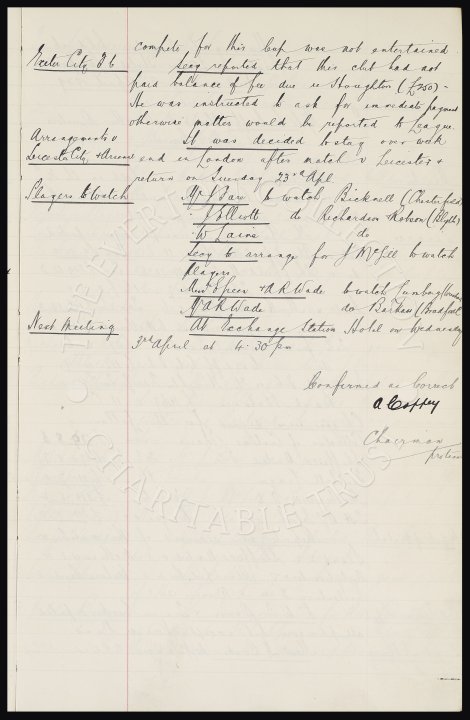 compete for this Cup was not entertained.
Exeter City F.C. Secy reported that this club had not
paid balance of fee due re Houghton (£250) -
He was instructed to ask for immediate payment
otherwise matter would be reported to League.
Arrangements v It was decided to stay over week
Leicester City, & Arsenal end in London after match v Leicester &
return on Tuesday 23rd Apl.
Players to Watch Mr J Faw to watch Bicknell (Chesterfield)
" J Elliott do Richardson & Robson (Blyth)
" W Laine do
Secy to arrange for J McGill to watch
players
Messrs & A R Wade to watch
Mr A R Wade do Barkas (Bradford)
Next Meeting At Exchange Station Hotel on Wednesday
3rd April at 4.30 pm
Confirmed as Correct
A Coffey
Chairman
protem
THE EVERTON
CHARITABLE TRUST